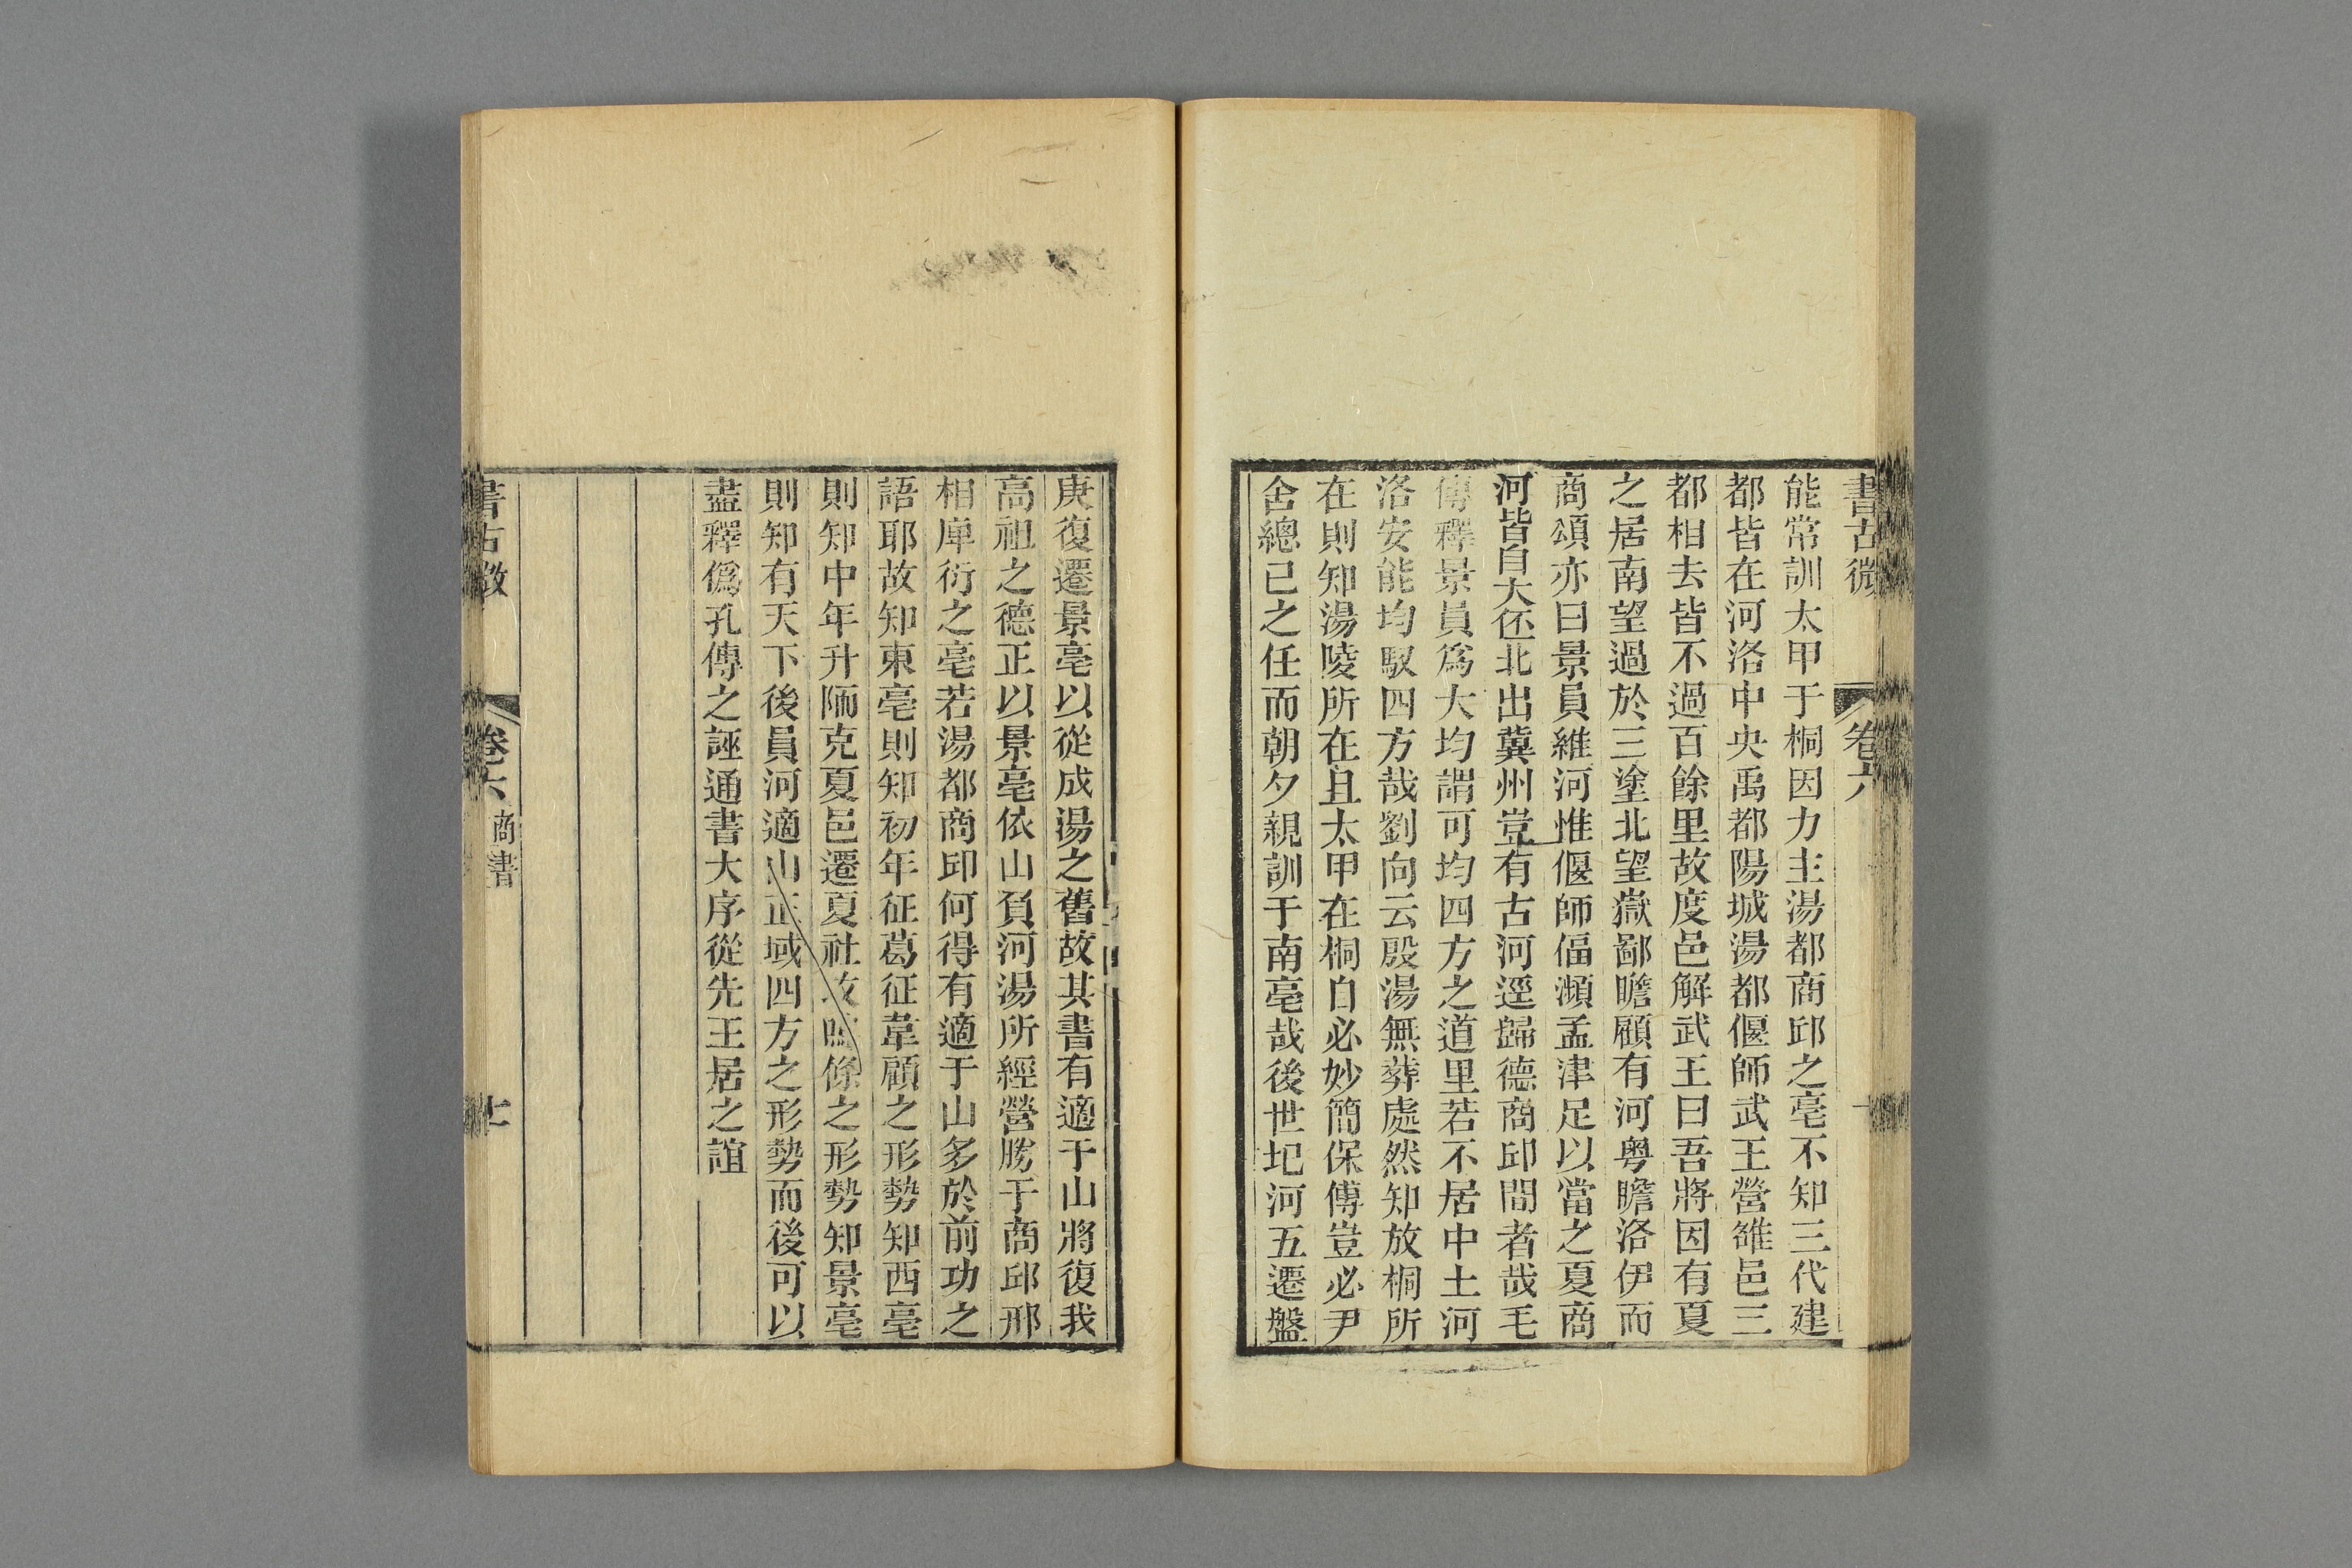 書古微
卷六
能常訓太甲于桐因力主湯都商邱之亳不知三代建
都皆在河洛中央禹都陽城湯都偃師武王營雒邑三
都相去皆不過百餘里故度邑解武王曰吾將因有夏
之居南望過於三塗北望嶽鄙瞻顧有河粵瞻洛伊而
商頌亦曰景員維河惟偃師偪瀕孟津足以當之夏商
河皆自大伾北出冀州豈有古河逕歸德商邱間者哉毛
傳釋景員爲大均謂可均四方之道里若不居中土河
洛安能均馭四方哉劉向云殷湯無葬處然知放桐所
在則知湯陵所在且太甲在桐自必妙簡保傅豈必尹
舍總已之任而朝夕親訓于南亳哉後世圮河五遷盤
庚復遷景亳以從成湯之舊故其書有適于山將復我
高祖之德正以景亳依山負河湯所經營勝于商邱邢
相庳衍之亳若湯都商邱何得有適于山多於前功之
語耶故知東亳則知初年征葛征韋顧之形勢知西亳
則知中年升陑克夏邑遷夏社攻鳴條之形勢知景亳
則知有天下後員河適山正域四方之形勢而後可以
盡釋僞孔傳之誣通書大序從先王居之誼
書古微
卷六
商書
十